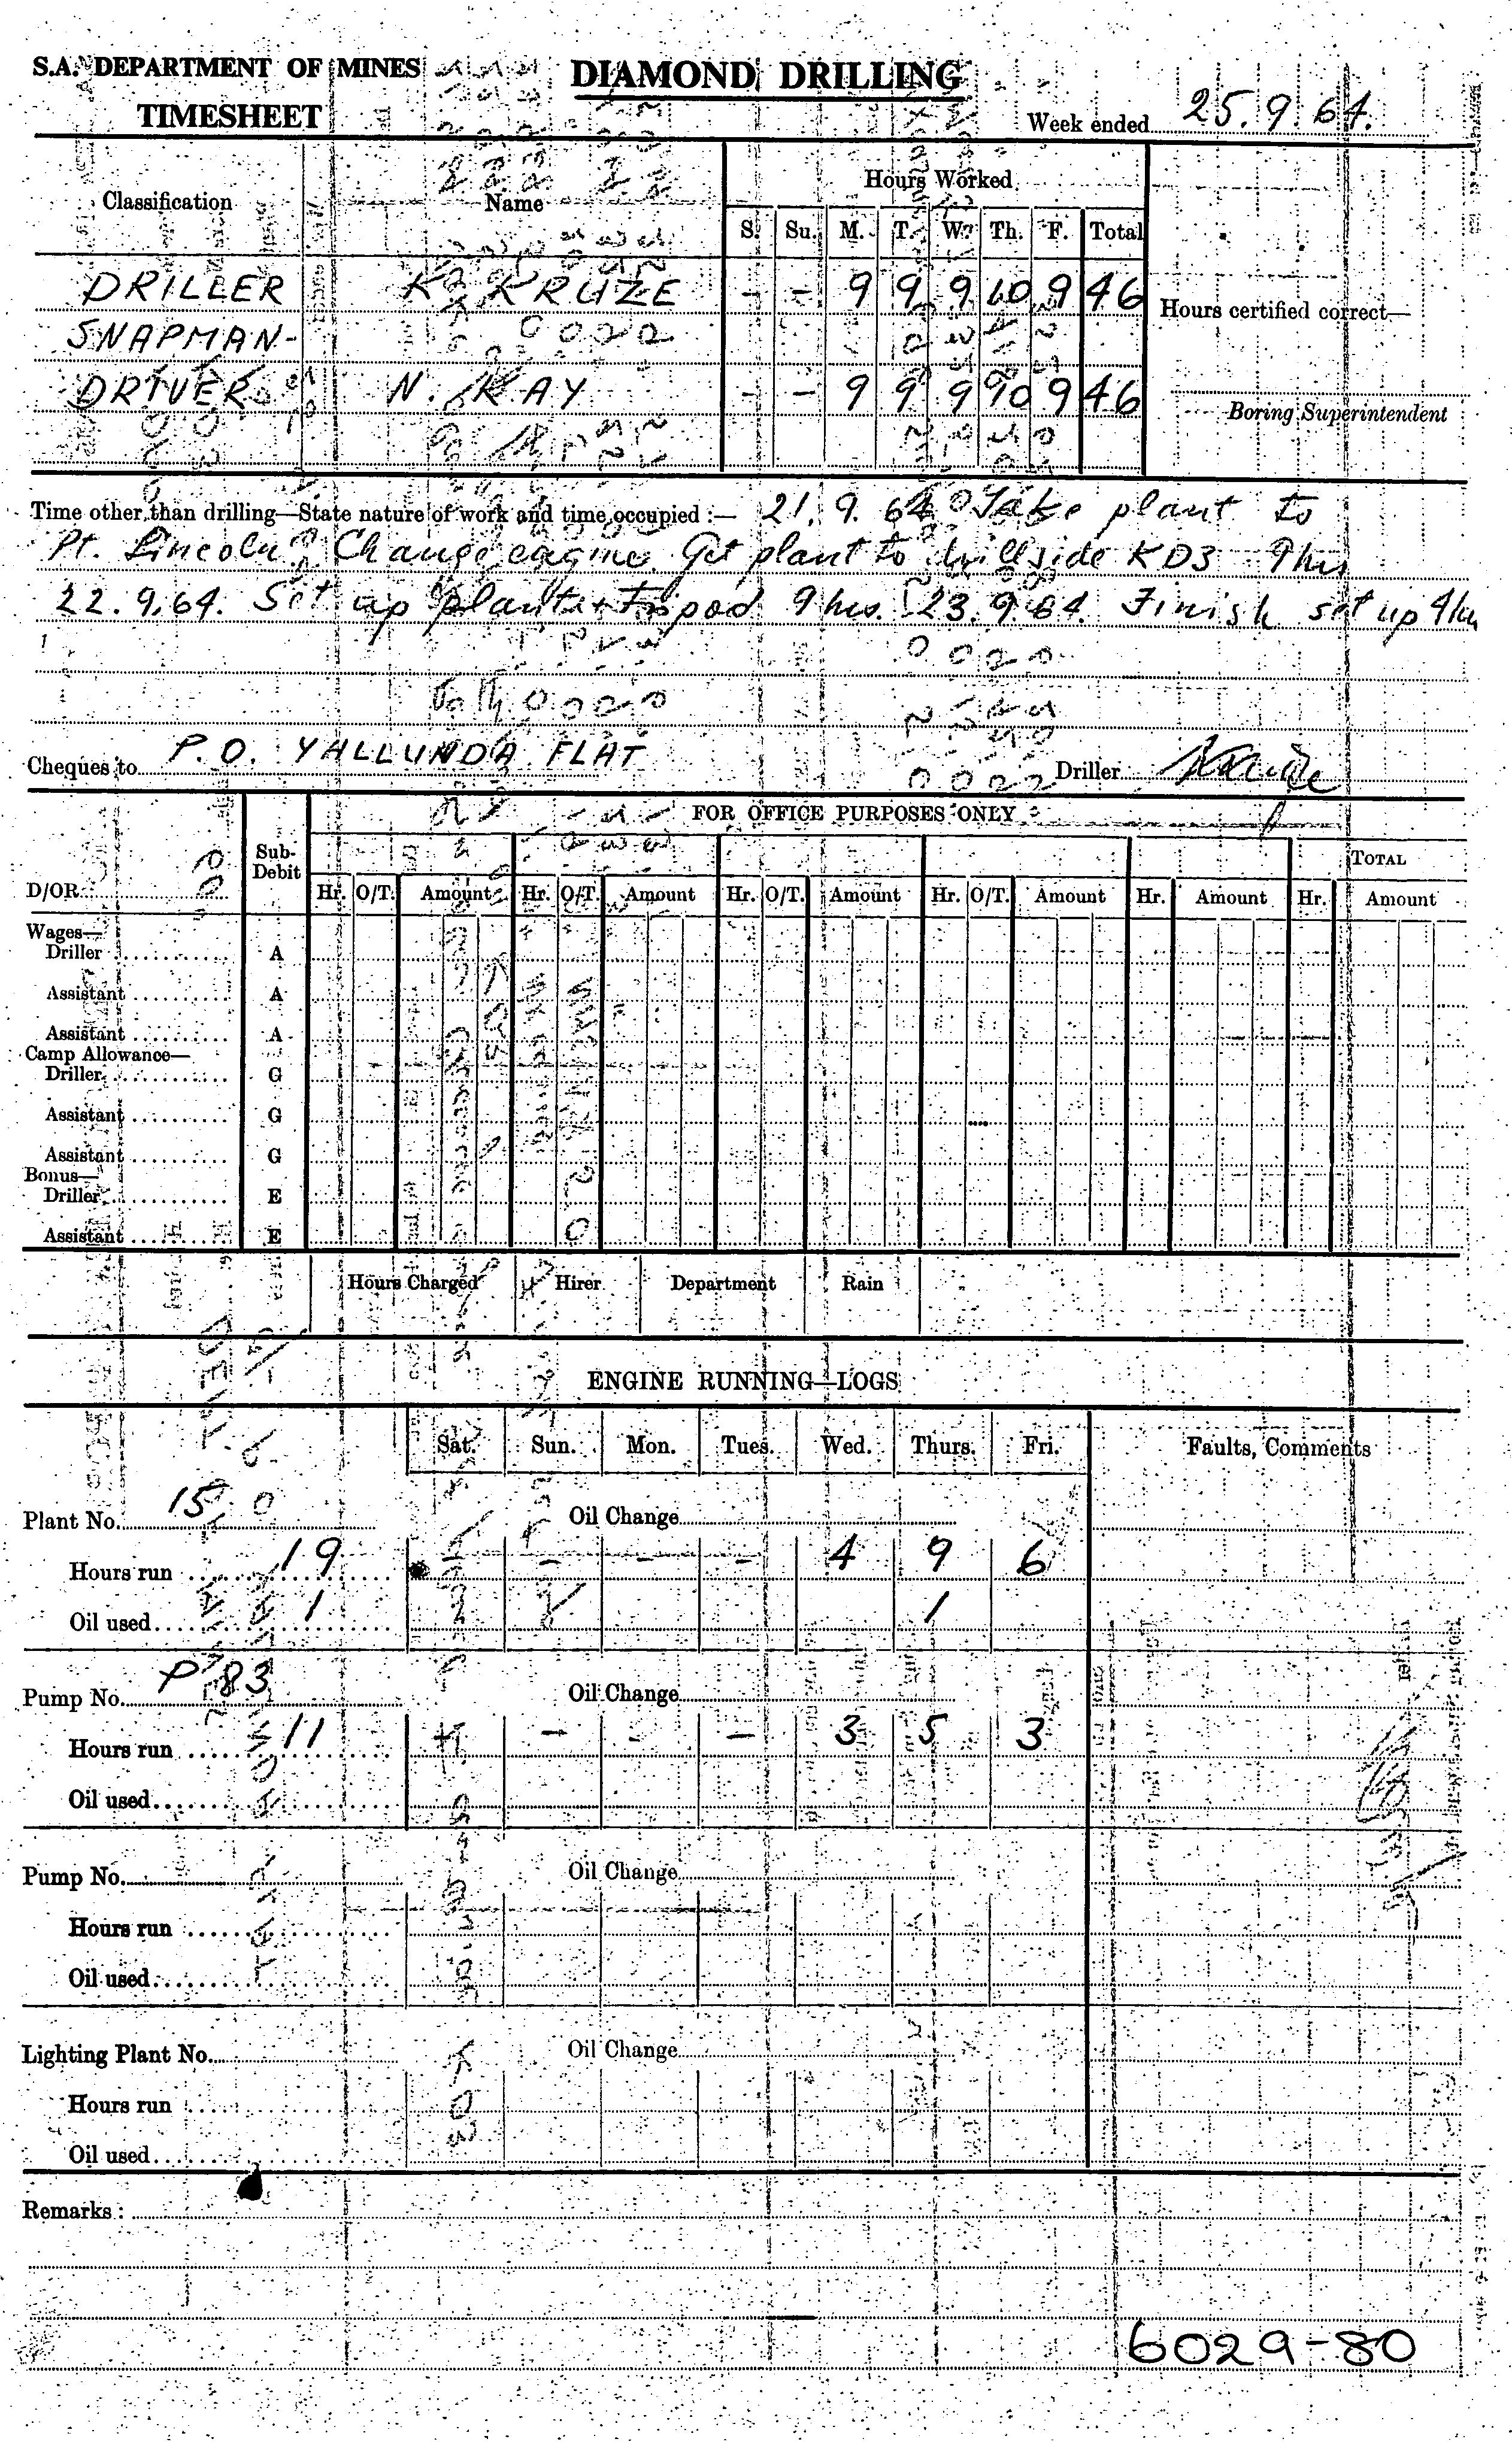 S.A. DEPARTMENT OF MINES DIAMOND DRILLING
TIMESHEET
Week ended 25.9.64.
Classification Name Hours Worked
S. Su. M. T. W. Th. F. Total
DRILLER K. KRUZE - - 9 9 9 10 9 46
Hours certified correct—
SNAPMAN-
DRIVER N. KAY - - 9 9 9 10 9 46
Boring Superintendent
Time other than drilling—State nature of work and time occupied :— 21.9.64 Take plant to
Pt. Lincoln. Change engine. Get plant to drillside KD3 9 hrs
22.9.64. Set up plant & Tripod 9 hrs. 23.9.64. Finish set up 4 hrs
Cheques to P.O. YALLUNDA FLAT Driller
FOR OFFICE PURPOSES ONLY
D/OR Sub-Debit TOTAL
Hr. O/T. Amount Hr. O/T. Amount Hr. O/T. Amount Hr. O/T. Amount Hr. Amount Hr. Amount
Wages—
Driller A
Assistant A
Assistant A
Camp Allowance—
Driller G
Assistant G
Assistant G
Bonus—
Driller E
Assistant E
Hours Charged Hirer Department Rain
ENGINE RUNNING—LOGS
Sat. Sun. Mon. Tues. Wed. Thurs. Fri. Faults, Comments
Plant No. 15 Oil Change
Hours run 19 - - - 4 9 6
Oil used 1 1
Pump No. P 83 Oil Change
Hours run 11 - - - 3 5 3
Oil used
Pump No. Oil Change
Hours run
Oil used
Lighting Plant No. Oil Change
Hours run
Oil used
Remarks :
6029-80